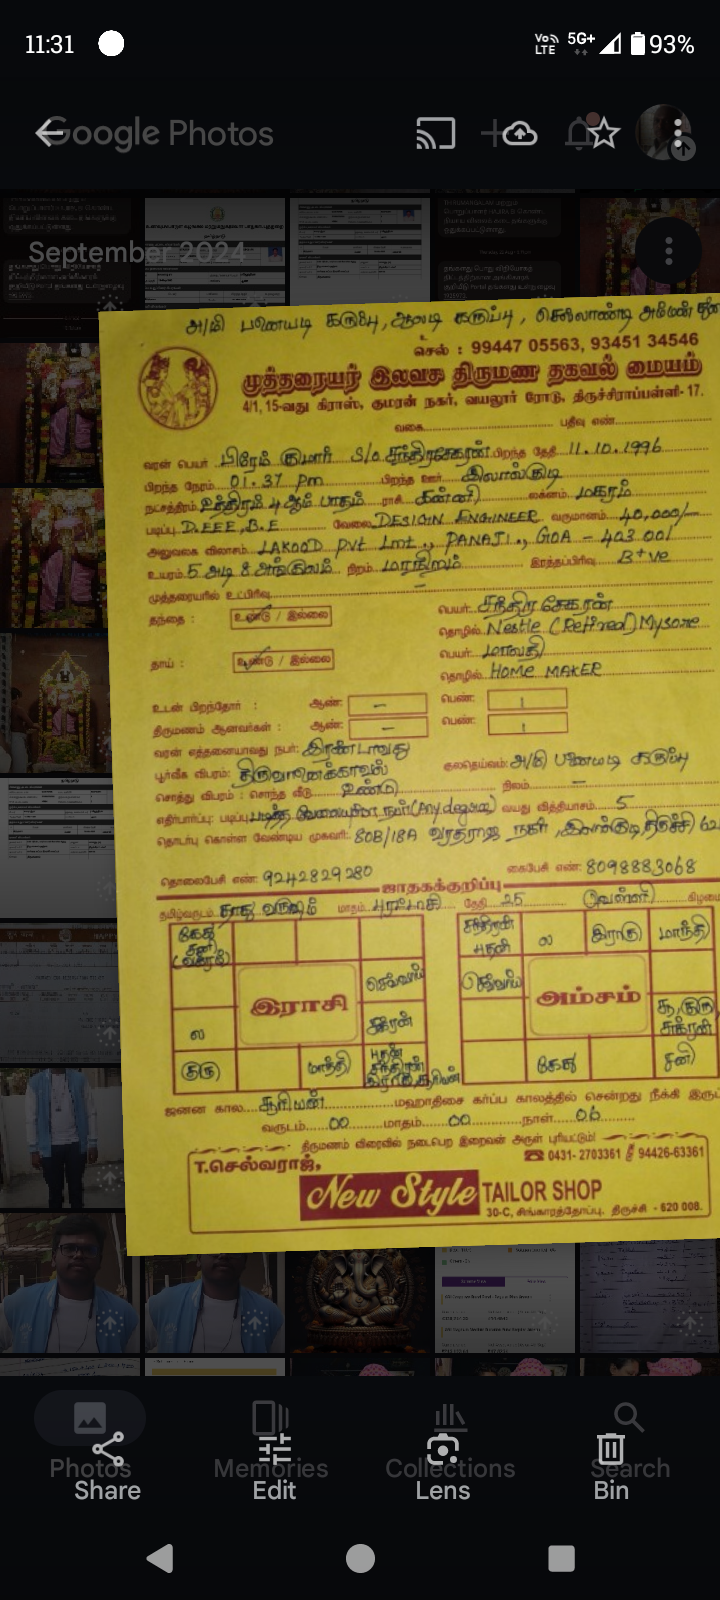 11:31
Vo LTE 5G+ 93%
Google Photos
September 2024
அ/மி பனையடி கருப்பு, ஆலடி கருப்பு, செல்லாண்டி அம்மன்
செல் : 99447 05563, 93451 34546
முத்தரையர் இலவச திருமண தகவல் மையம்
4/1, 15-வது கிராஸ், குமரன் நகர், வயலூர் ரோடு, திருச்சிராப்பள்ளி- 17.
வகை பதிவு எண்
வரன் பெயர் பிரேம் குமார் S/o சந்திரசேகரண் பிறந்த தேதி 11.10.1996
பிறந்த நேரம் 01.37 pm பிறந்த ஊர் இலால்குடி
நட்சத்திரம் உத்திரம் 4 ஆம் பாதம் ராசி கன்னி லக்னம் மகரம்
படிப்பு D.EEE, B.E வேலை DESIGN ENGINEER வருமானம் 40,000/-
அலுவலக விலாசம் LAKOOD Pvt Lmt., PANAJI., GOA - 403 001
உயரம் 5 அடி 8 அங்குலம் நிறம் மாநிறம் இரத்தப்பிரிவு B+ve
முத்தரையரில் உட்பிரிவு -
தந்தை : உண்டு / இல்லை பெயர் சந்திர சேகரண்
தொழில் Nestle (Retired) Mysore
தாய் : உண்டு / இல்லை பெயர் மாலதி
தொழில் HOME MAKER
உடன் பிறந்தோர் : ஆண்: - பெண்: 1
திருமணம் ஆனவர்கள் : ஆண்: - பெண்: 1
வரன் எத்தனையாவது நபர்: இரண்டாவது
பூர்வீக விபரம்: திருவானைக்காவல் குலதெய்வம்: அ/மி பனையடி கருப்பு
சொத்து விபரம் : சொந்த வீடு உண்டு நிலம் -
எதிர்பார்ப்பு: படிப்பு படித்த வேலையுள்ள நபர் (Any degree) வயது வித்தியாசம் 5
தொடர்பு கொள்ள வேண்டிய முகவரி: 80B/18A வரதராஜ நகர், இலால்குடி, திருச்சி 62
தொலைபேசி எண்: 9242829280 கைபேசி எண்: 8098883068
ஜாதகக்குறிப்பு
தமிழ்வருடம் தாது வருஷம் மாதம் புரட்டாசி தேதி 25 வெள்ளி கிழமை
கேது சனி (வக்ரம்)
செவ்வாய்
இராசி
ல சுக்ரன்
குரு மாந்தி புதன் சந்திரன் இராகு, சூரியன்
சந்திரன் புதன் ல இராகு மாந்தி
செவ்வாய்
அம்சம்
சூ, குரு சுக்ரன்
கேது சனி
ஜனன கால சூரியன் மஹாதிசை கர்ப்ப காலத்தில் சென்றது நீக்கி இருப்
வருடம் 00 மாதம் 00 நாள் 06
திருமணம் விரைவில் நடைபெற இறைவன் அருள் புரியட்டும்!
T.செல்வராஜ், 0431- 2703361 94426-63361
New Style TAILOR SHOP
30-C, சிங்காரத்தோப்பு, திருச்சி - 620 008.
Photos Memories Collections Search
Share Edit Lens Bin